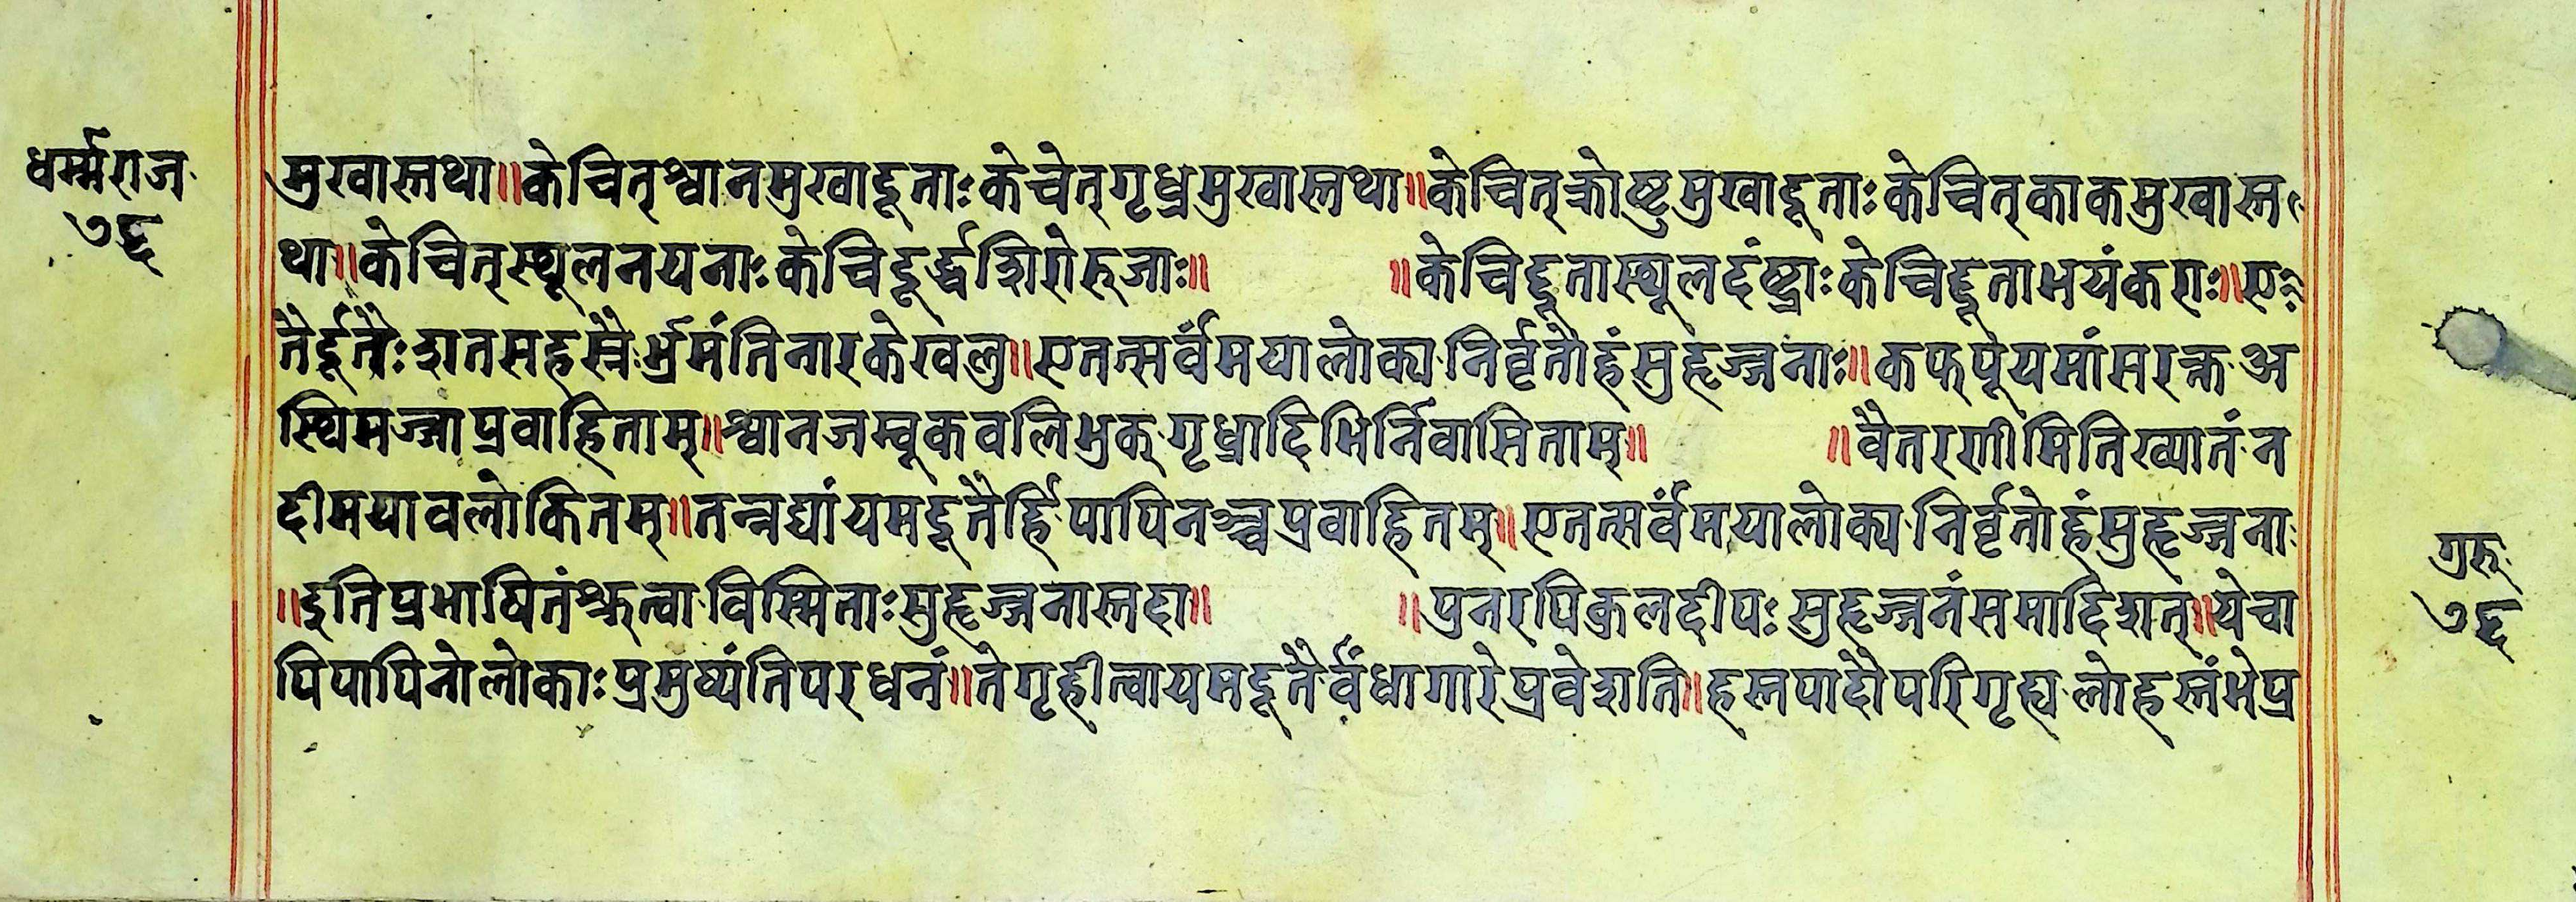 धर्म्मराज
७६
मुखास्तथा॥केचित्श्वानमुखादूताःकेचेत्गृध्रमुखास्तथा॥केचित्क्रोष्टुमुखादूताःकेचित्काकमुखास्त
था॥केचित्स्थूलनयनाःकेचिदूर्द्धशिरोरुजाः॥ ॥केचिद्दूतास्थूलदंष्ट्राःकेचिद्दूताभयंकराः॥ए
तैर्दूतैःशतसहस्रैर्भ्रमंतिनारकेखलु॥एतत्सर्वंमयालोक्यनिर्वृतोहंसुहृज्जनाः॥कफपूयमांसरक्तअ
स्थिमज्जाप्रवाहिताम्॥श्वानजम्बूकवलिभुक्गृध्रादिभिर्निवासिताम्॥ ॥वैतरणीमितिख्यातंन
दीमयावलोकितम्॥तन्नद्यांयमदूतैर्हिपापिनश्चप्रवाहितम्॥एतत्सर्वंमयालोक्यनिर्वृतोहंसुहृज्जना
॥इतिप्रभाषितंश्रुत्वाविस्मिताःसुहृज्जनास्तदा॥ ॥पुनरपिकुलदीपःसुहृज्जनंसमादिशत्॥येचा
पिपापिनोलोकाःप्रमुष्यंतिपरधनं॥तेगृहीत्वायमदूतैर्वंधागारेप्रवेशति॥हस्तपादौपरिगृह्यलोहस्तंभेप्र
गुरु
७६